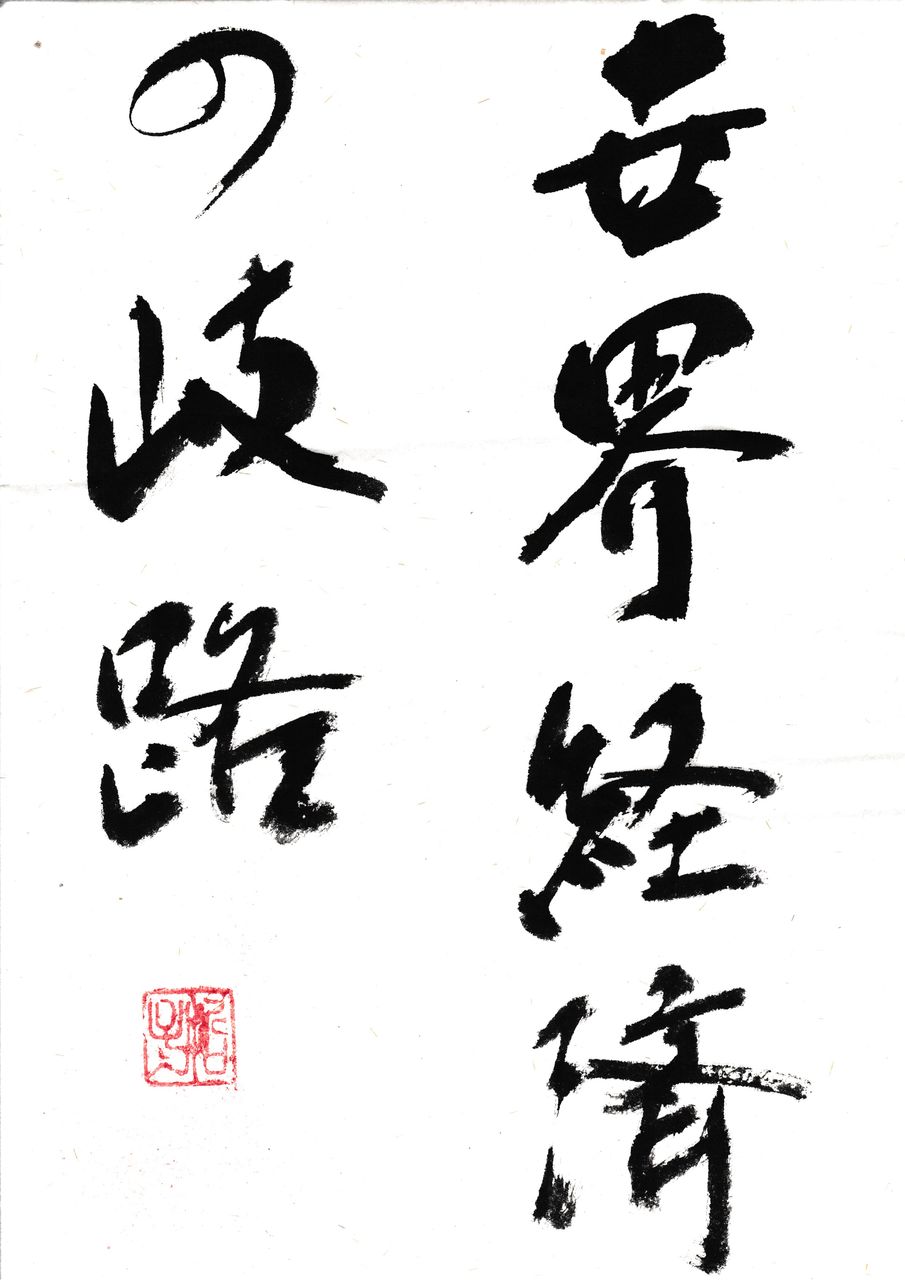 世界経済
の岐路